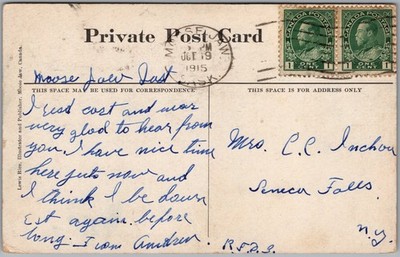 Private Post Card
MOOSE JAW
PM
OCT 19
1915
SASK
CANADA POSTAGE
1 ONE CENT 1
CANADA POSTAGE
1 ONE CENT 1
Moose Jaw Sask
THIS SPACE MAY BE USED FOR CORRESPONDENCE
THIS SPACE IS FOR ADDRESS ONLY
Lewis Rice, Illustrator and Publisher, Moose Jaw, Canada.
I resd cost and war
very glad to hear from
you. I have nice time
here juts now and
I think I be down
Est again before
long. I am Andrew
Mrs. C. C.
Seneca Falls
N.Y.
R.F.D.